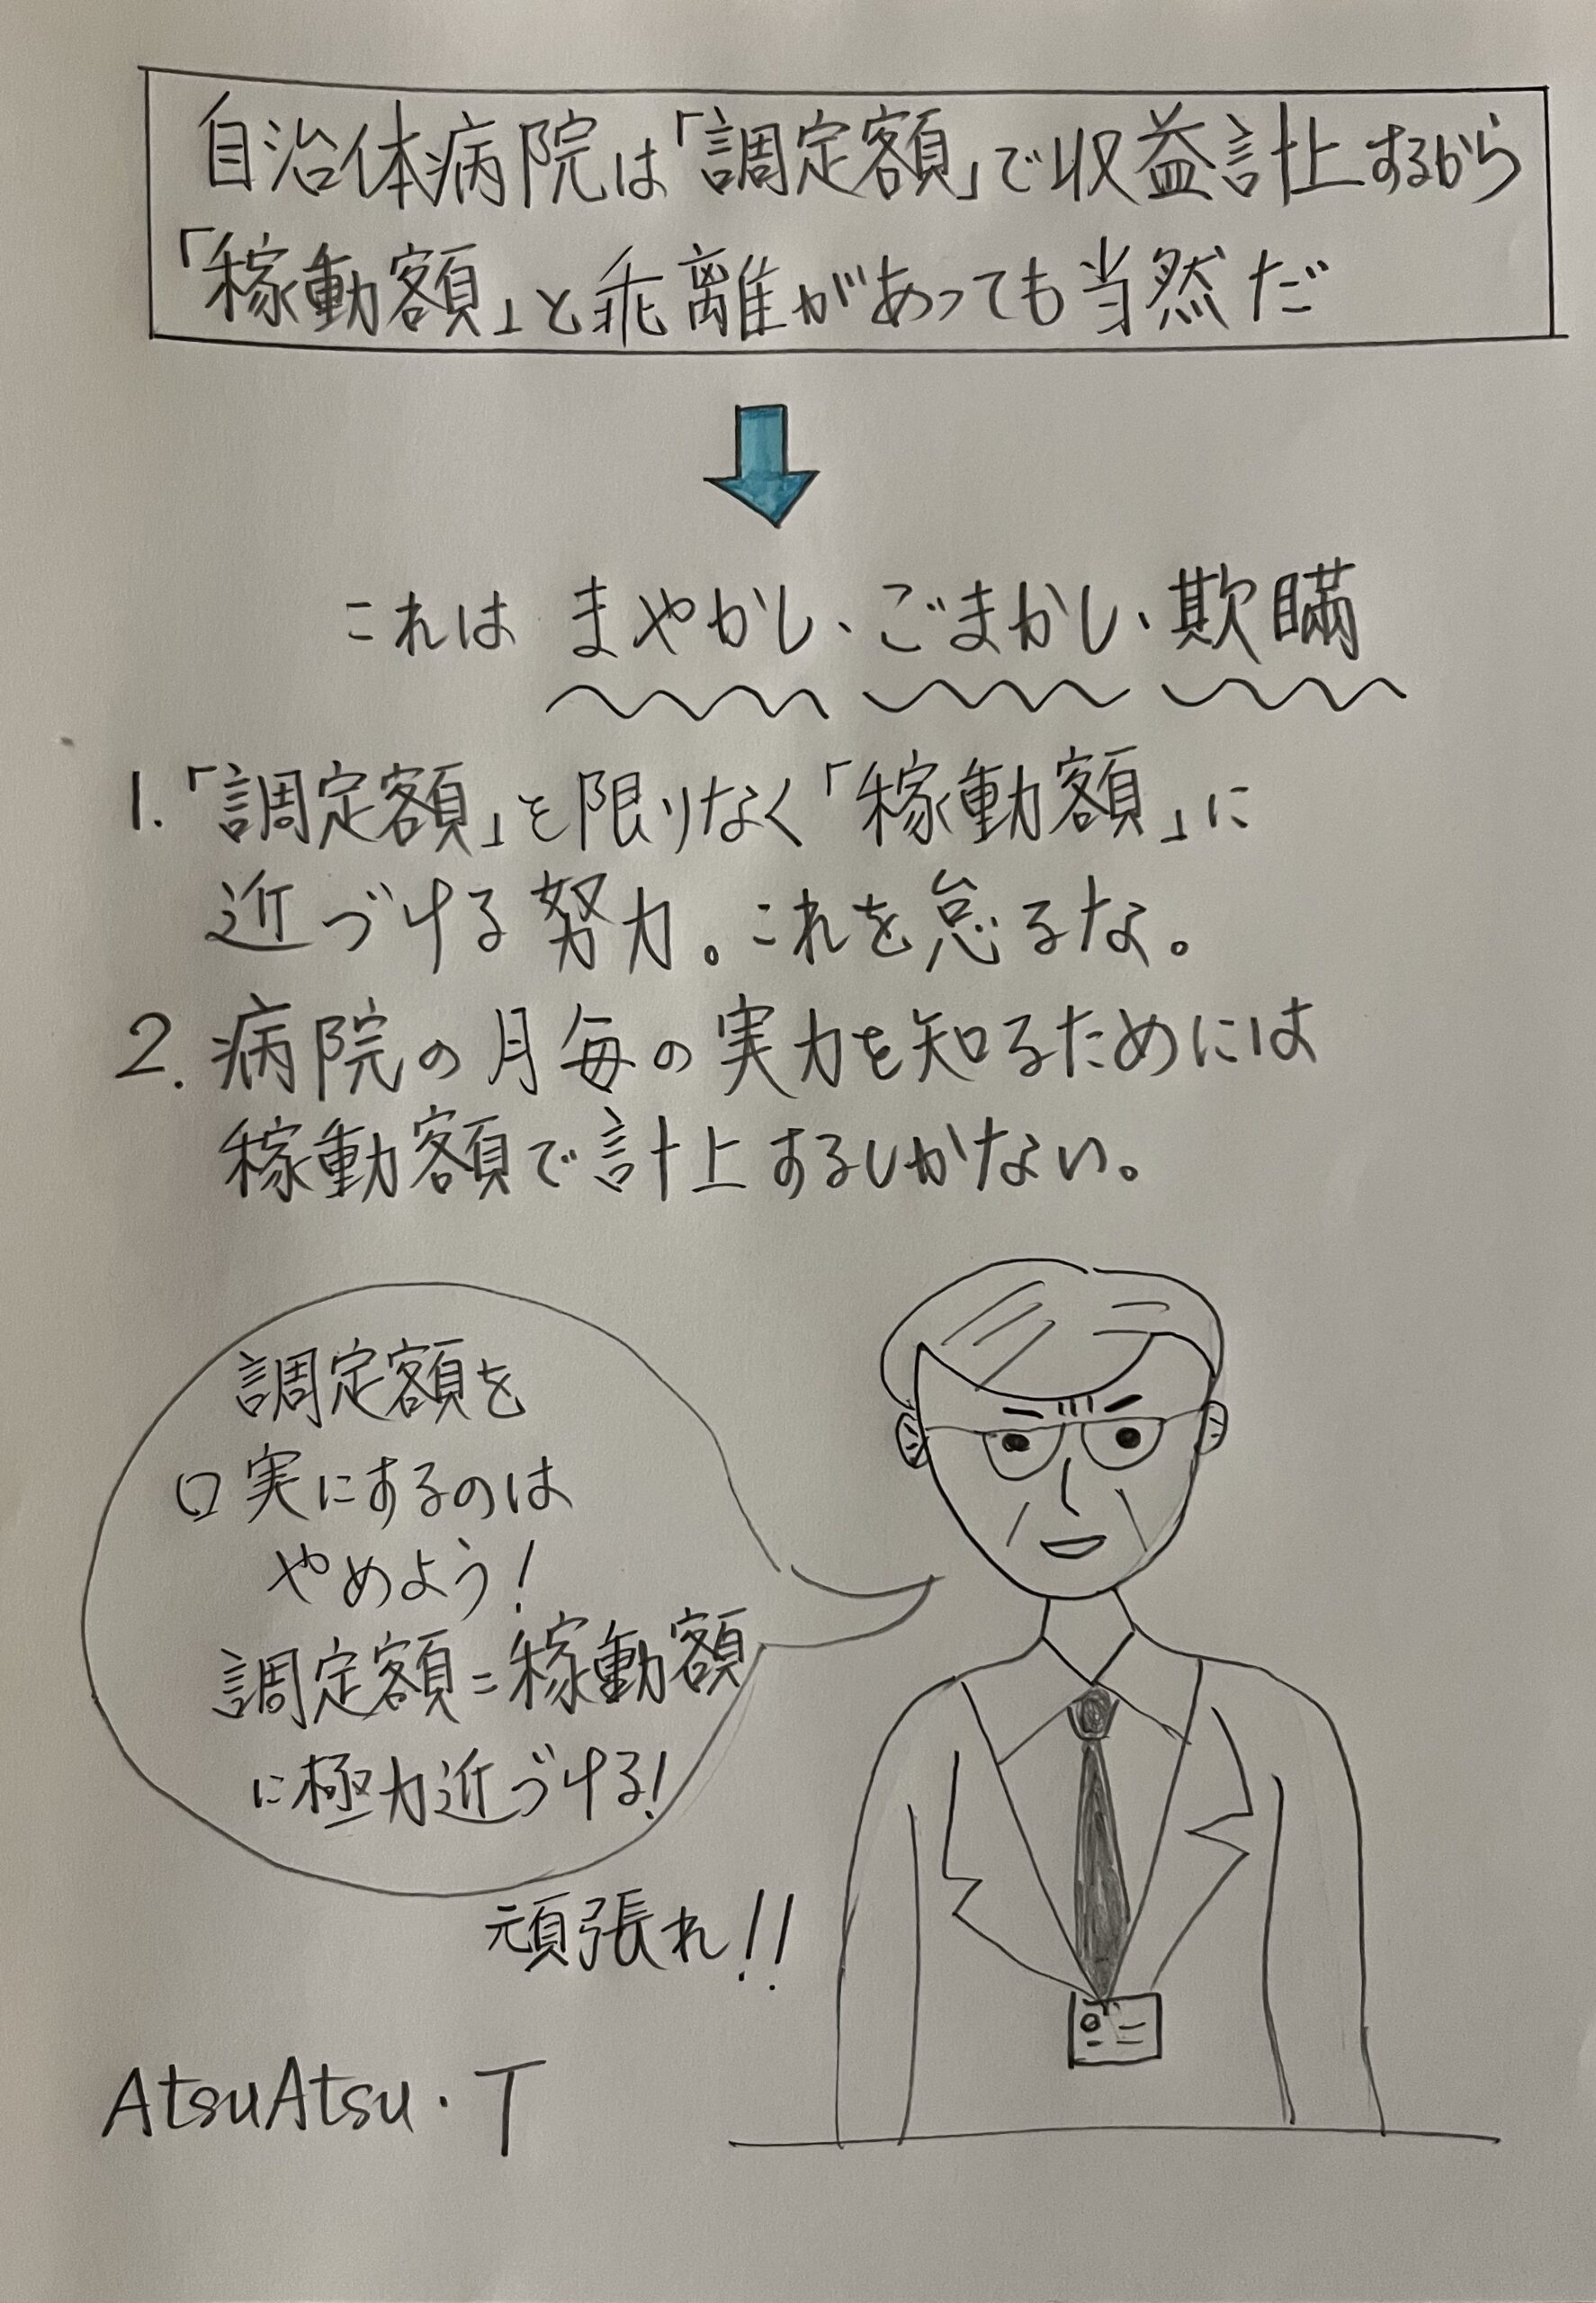 自治体病院は「調定額」で収益計上するから
「稼動額」と乖離があっても当然だ
これは まやかし、ごまかし、欺瞞
1.「調定額」を限りなく「稼動額」に
近づける努力。これを怠るな。
2. 病院の月毎の実力を知るためには
稼動額で計上するしかない。
調定額を
口実にするのは
やめよう!
調定額=稼動額
に極力近づける!
頑張れ!!
AtsuAtsu・T